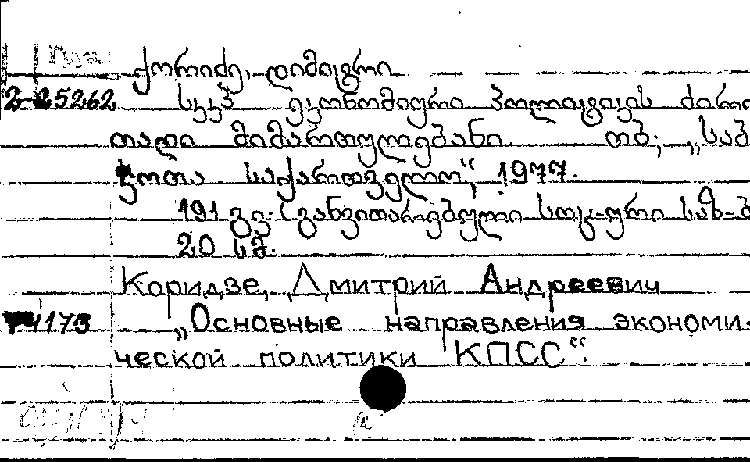 ქორიძე, დიმიტრი
2-25262 სკკპ ეკონომიური პოლიტიკის ძირი
თადი მიმართულებანი. თბ., „საბ
ჭოთა საქართველო“, 1977.
191 გვ. (განვითარებული სოც-ური საზ-ბ
20 სმ.
Коридзе, Дмитрий Андреевич
1173 „Основные направления экономи-
ческой политики КПСС“.